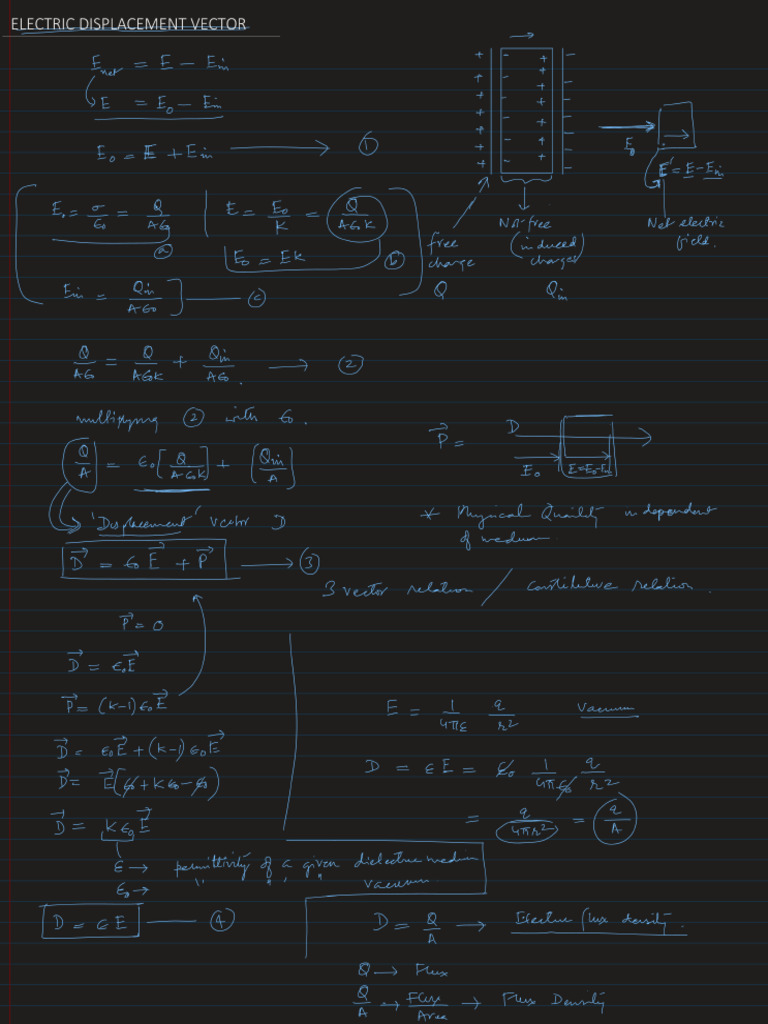 ELECTRIC DISPLACEMENT VECTOR
E_net = E - E_in
E = E_0 - E_in
E_0 = E + E_in → ①
E_0 = σ/ε_0 = Q/Aε_0 ⓐ
E = E_0/K = Q/Aε_0K
E_0 = EK ⓑ
E_in = Q_in/Aε_0 ⓒ
+ -
- +
E_0
E' = E - E_in
Net electric
field.
free
charge
Q
Non-free
(induced
charges)
Q_in
Q/Aε_0 = Q/Aε_0K + Q_in/Aε_0 → ②
multiplying ② with ε_0.
Q/A = ε_0[Q/Aε_0K] + [Q_in/A]
→ 'Displacement' vector D
D⃗ = ε_0 E⃗ + P⃗ → ③
P⃗ =
D
E_0
E = E_0 - E_in
* Physical Quality independent
of medium.
3 vector relation / constitutive relation.
P⃗ = 0
D⃗ = ε_0E⃗
P⃗ = (K-1)ε_0E⃗
D⃗ = ε_0E⃗ + (K-1)ε_0E⃗
D⃗ = E⃗(ε_0 + Kε_0 - ε_0)
D⃗ = Kε_0E⃗
ε → permittivity of a given dielectric medium
ε_0 → " " " vacuum.
D = εE ④
E = 1/4πε q/r² Vacuum
D = εE = ε_0 1/4πε_0 q/r²
= q/4πr² = q/A
D = Q/A → Effective flux density.
Q → Flux
Q/A → Flux/Area → Flux Density